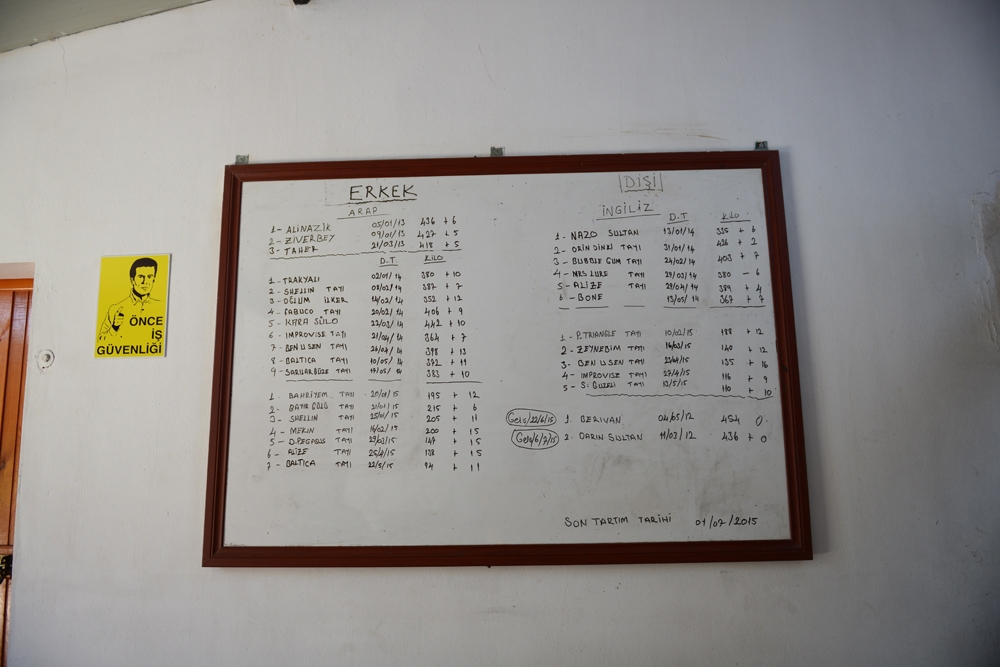 ÖNCE
İŞ
GÜVENLİĞİ
ERKEK
ARAP
1- ALİNAZİK 05/01/13 436 + 6
2- ZİVERBEY 09/01/13 427 + 5
3- TAHER 21/03/13 418 + 5
D.T. KİLO
1- TRAKYALI 02/01/14 380 + 10
2- SHELLIN TAYI 08/02/14 387 + 7
3- OĞLUM İLKER 14/02/14 352 + 12
4- FABUCO TAYI 20/02/14 406 + 9
5- KARA SÜLO 22/03/14 442 + 10
6- IMPROVISE TAYI 21/04/14 364 + 7
7- BEN U SEN TAYI 26/04/14 398 + 13
8- BALTICA TAYI 10/05/14 372 + 11
9- SARILARGÜZE TAYI 17/05/14 383 + 10
1- BAHRİYEM TAYI 20/01/15 195 + 12
2- BATIR GOLD TAYI 21/01/15 215 + 6
3- SHELLIN TAYI 25/01/15 205 + 11
4- MEKİN TAYI 16/02/15 200 + 15
5- D.PEGASUS TAYI 29/03/15 147 + 15
6- ALİZE TAYI 25/4/15 138 + 15
7- BALTICA TAYI 22/5/15 94 + 11
DİŞİ
İNGİLİZ D.T KİLO
1- NAZO SULTAN 13/01/14 395 + 6
2- ORIN DINKI TAYI 31/01/14 426 + 2
3- BUBBLE GUM TAYI 24/02/14 403 + 7
4- MRS LURE TAYI 29/03/14 380 - 6
5- ALİZE TAYI 29/04/14 389 + 4
6- BONE 13/05/14 367 + 7
1- P.TRIANGLE TAYI 10/02/15 188 + 12
2- ZEYNEBİM TAYI 16/03/15 140 + 12
3- BEN U SEN TAYI 22/04/15 135 + 16
4- IMPROVISE TAYI 27/4/15 116 + 9
5- S. GÜZELİ TAYI 12/5/15 110 + 10
Geliş/22/6/15 1. BERİVAN 04/05/12 454 0
Geliş/6/7/15 2. DARIN SULTAN 11/03/12 436 + 0
SON TARTIM TARİHİ 01/07/2015